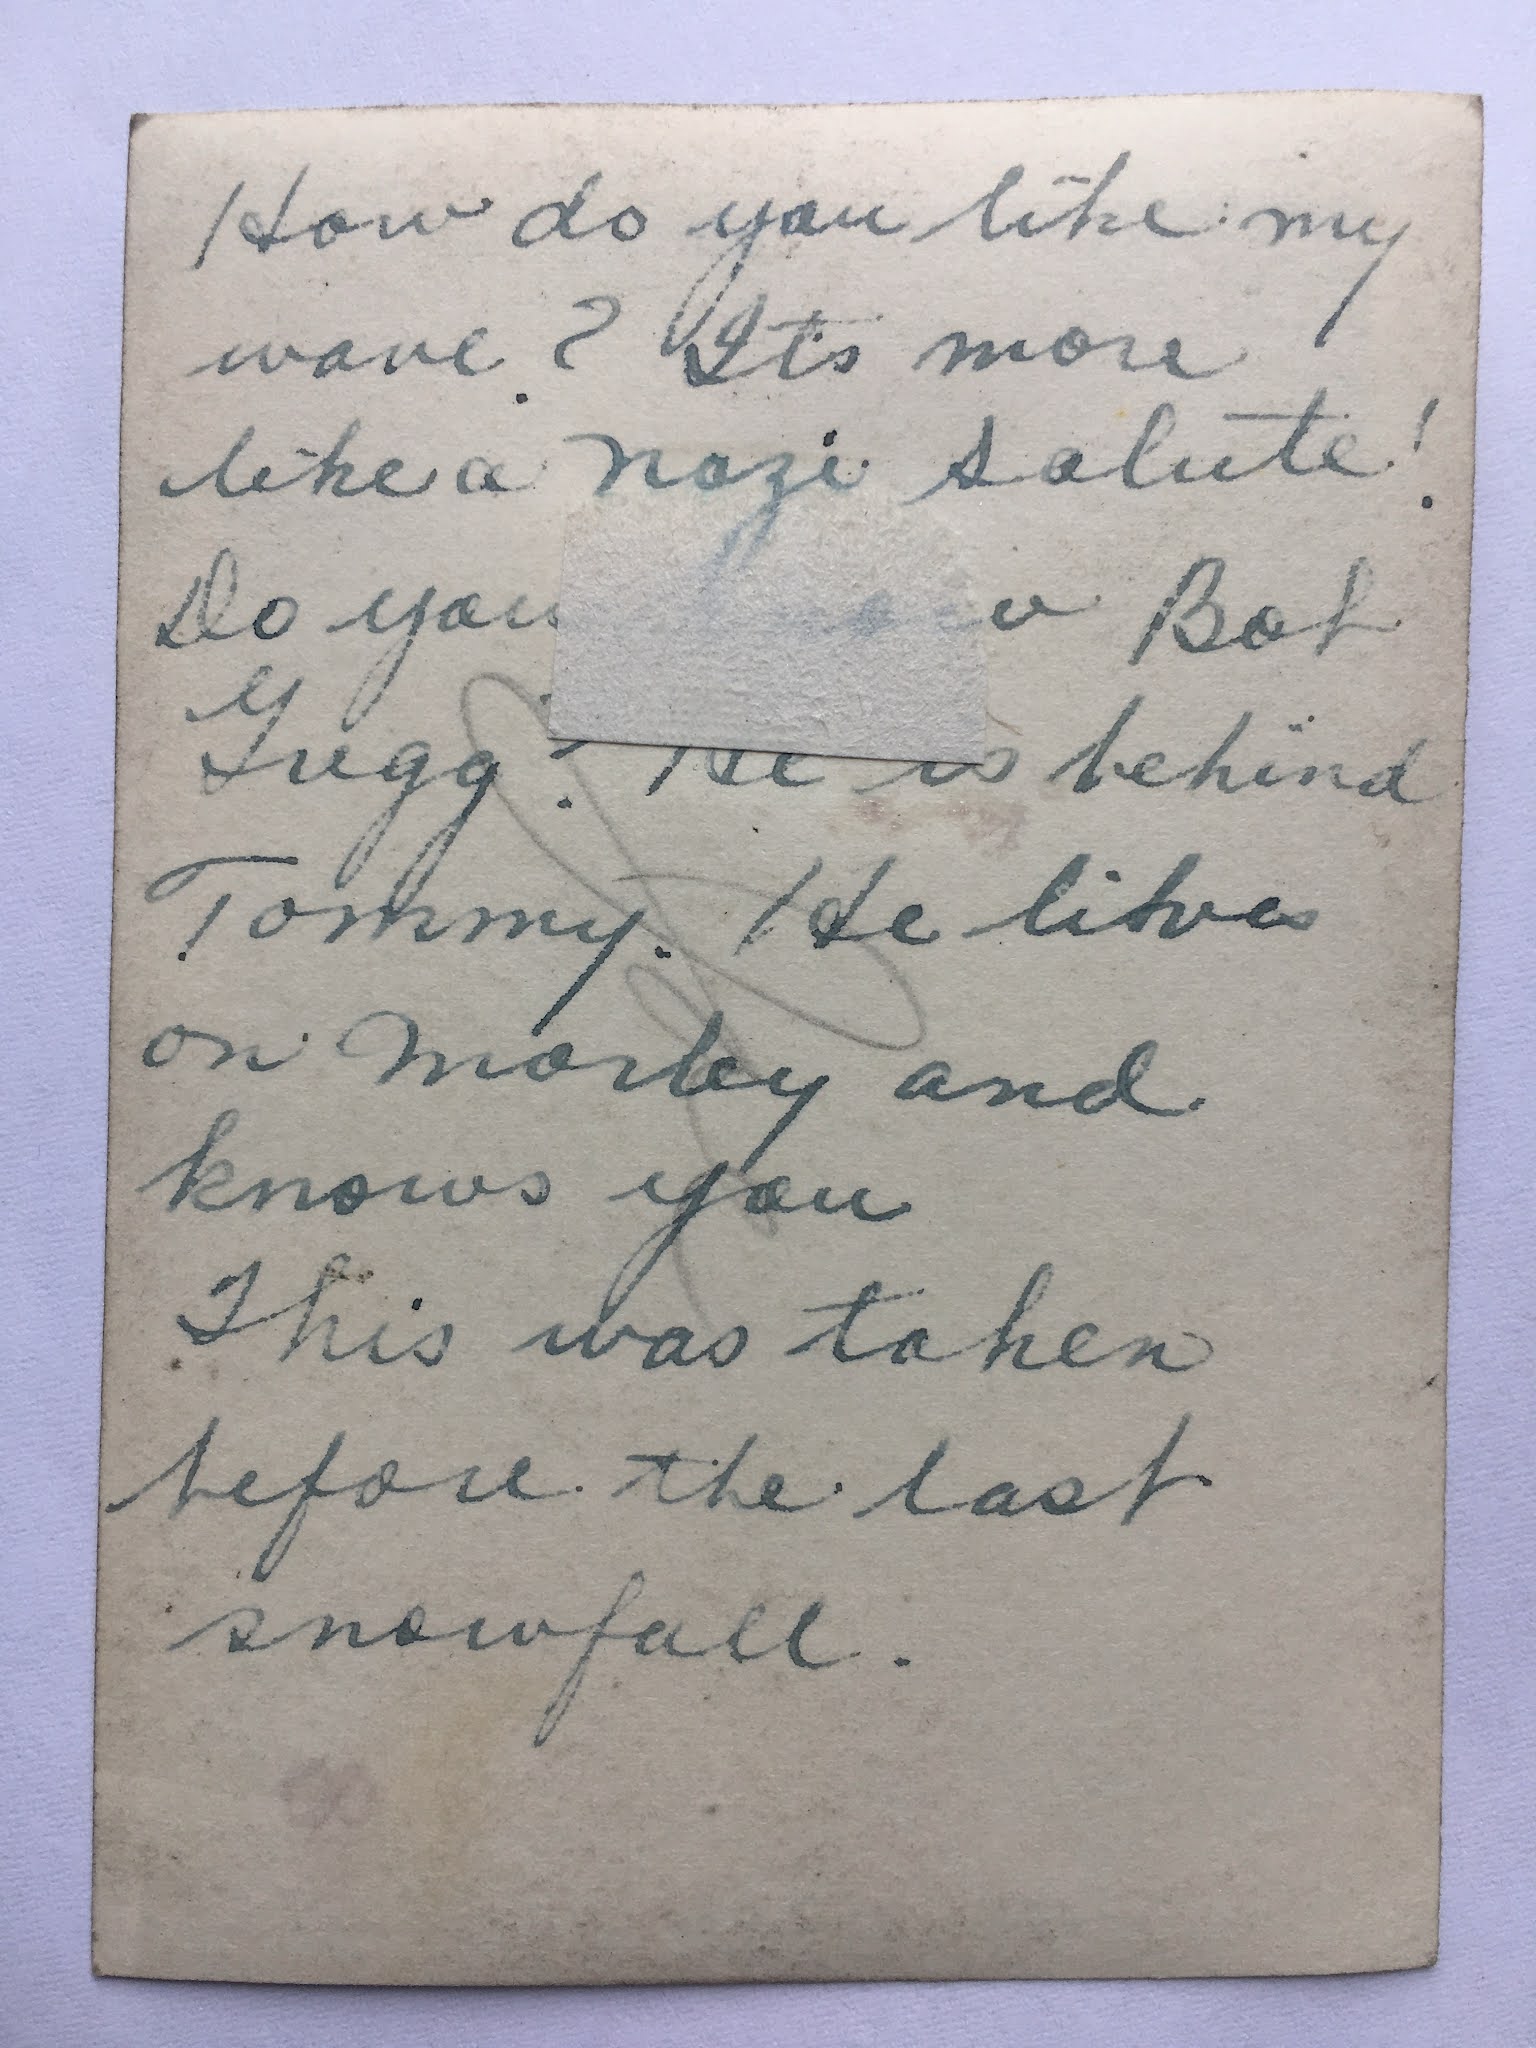 How do you like my
wave? Its more
like a nazi salute!
Do you Bob
Gregg? He is behind
Tommy. He lives
on Morley and
knows you
This was taken
before the last
snowfall.